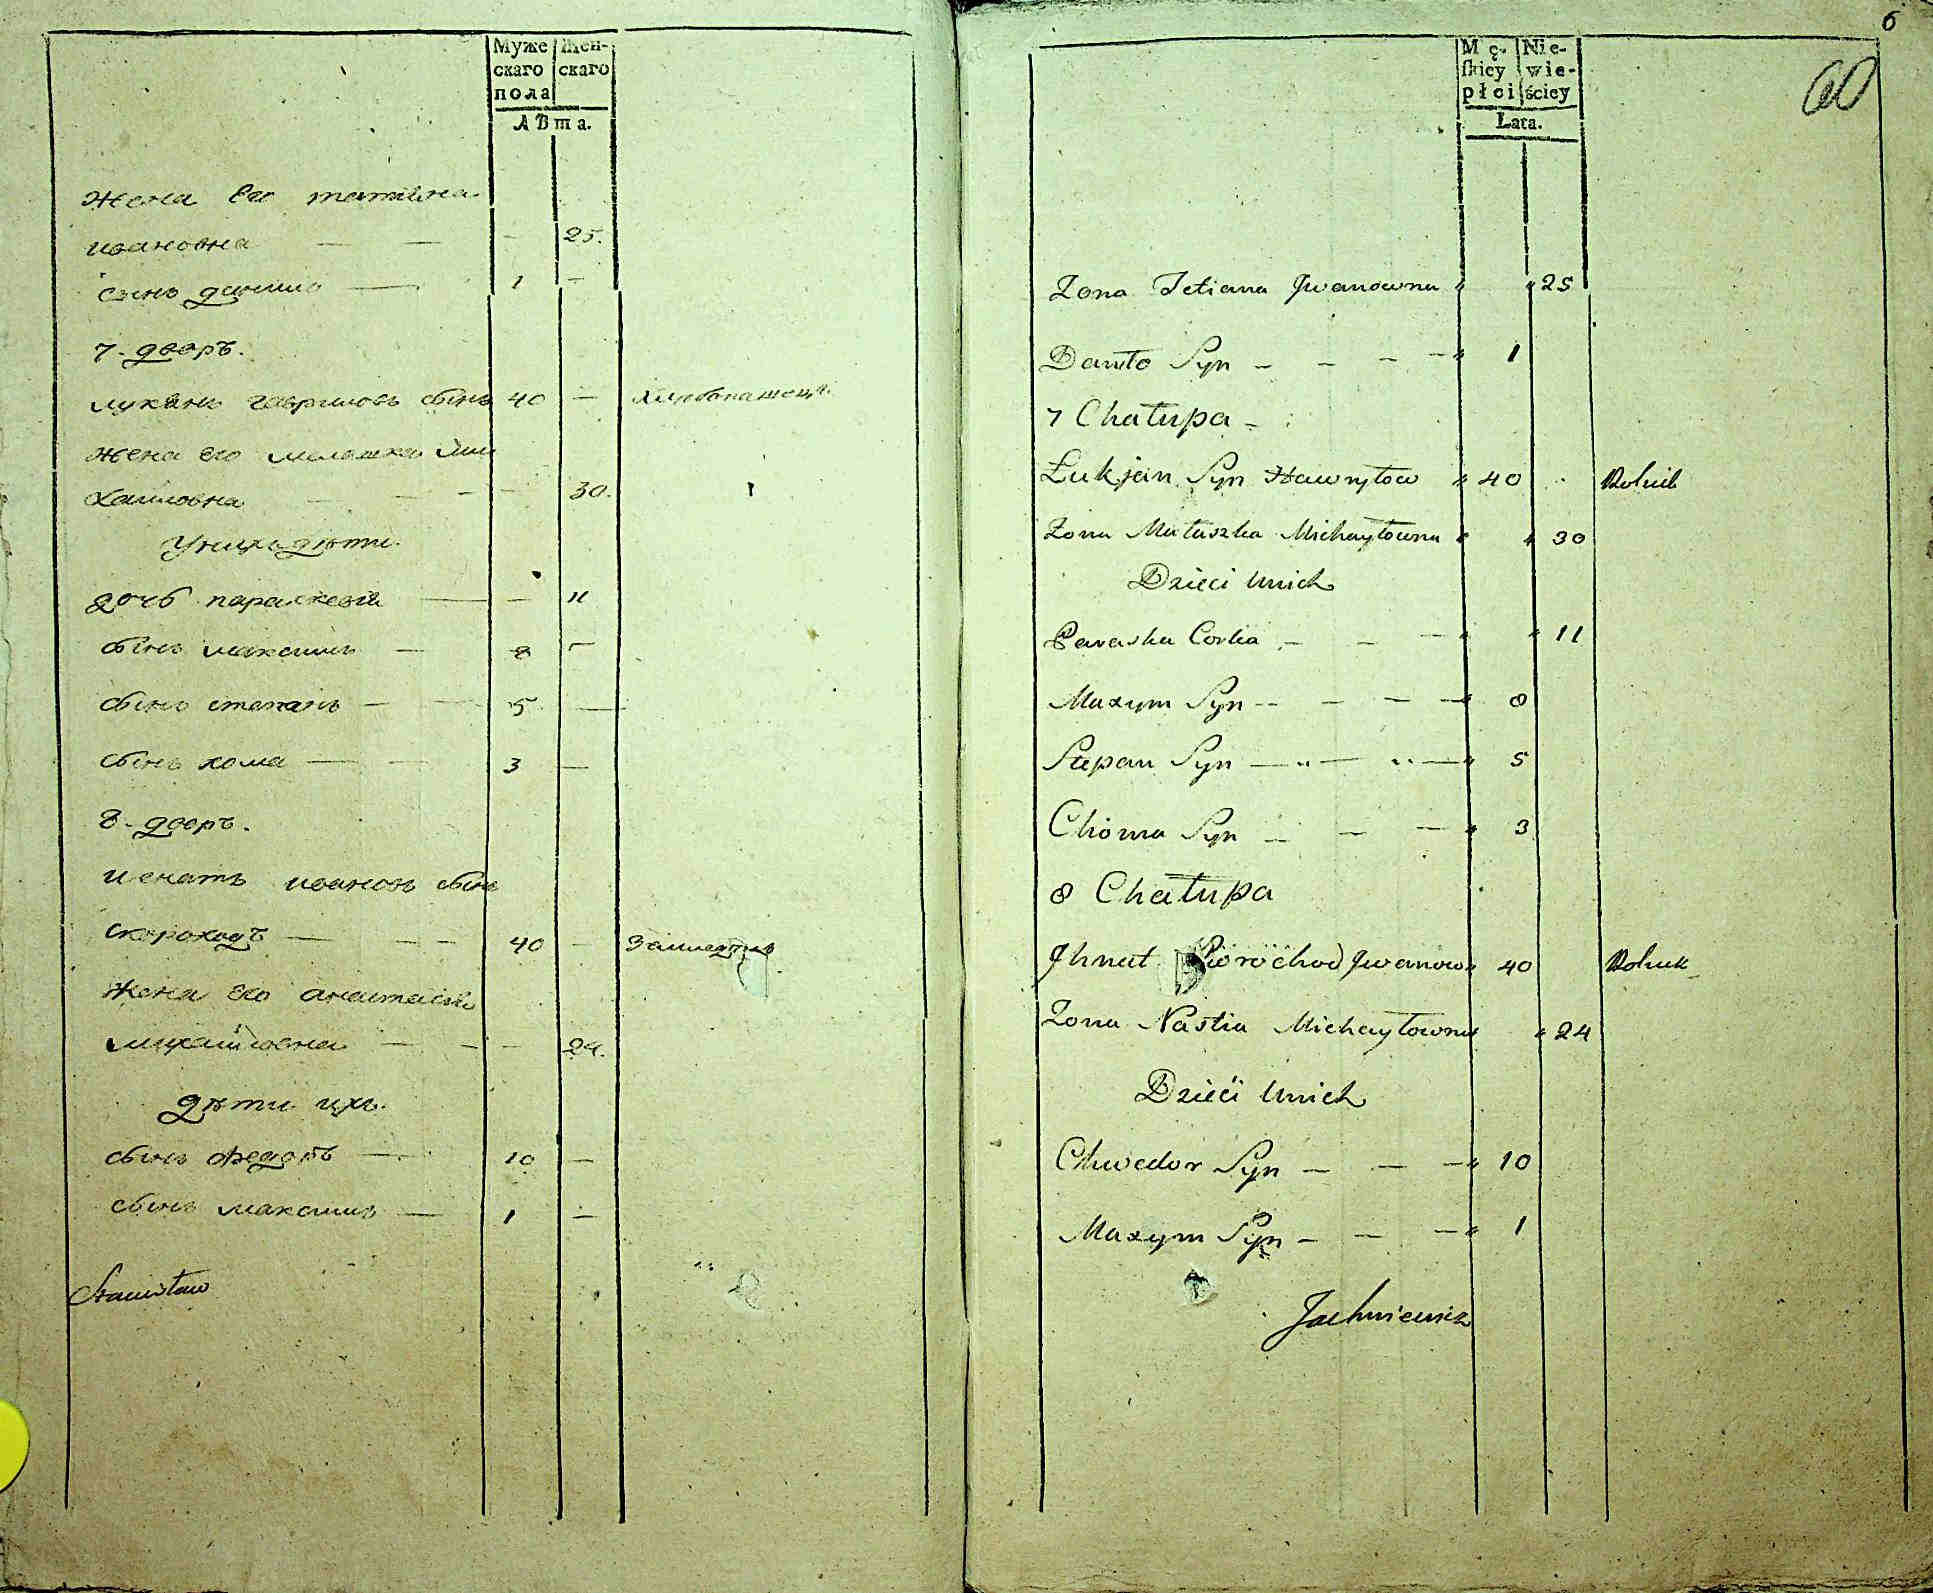 Муже
скаго
пола
Жен-
скаго
лѣта.
жена Его татіяна
ивановна — — — 25.
сынъ данило — 1 —
7. дворъ.
лукянъ гавриловъ сынъ 40 — хлѣбопашецъ
жена его малашка ми
хайловна — — — 30.
У нихъ дѣти.
дочь параскевія — — 11
сынъ максимъ — 8 —
сынъ степанъ — — 5 —
сынъ хома — — 3 —
8. дворъ.
игнатъ ивановъ сынъ
скороходъ — — — 40 —
жена его анастасія
михайловна — — — 24.
дѣти ихъ.
сынъ федоръ — 10 —
сынъ максимъ — 1 —
Stanisław
6
60
Mę-
skiey
płci
Nie-
wie-
ściey
Lata.
Żona Tetiana Jwanowna 25
Daniło Syn — — — 1
7 Chałupa —
Łukjan Syn Hawryłow 40 Rolnik
Żona Małuszka Michayłowna 30
Dzieci Unich
Paraska Corka — — — 11
Maxym Syn — — — 8
Stepan Syn — — — 5
Choma Syn — — — 3
8 Chałupa
Jhnat Skorochod Jwanow 40 Rolnik
Żona Nastia Michayłowna 24
Dzieci Unich
Chwedor Syn — — — 10
Maxym Syn — — — 1
Jachniewicz